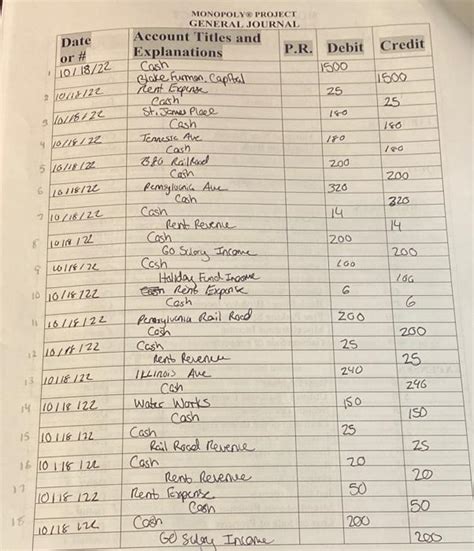 MONOPOLY® PROJECT
GENERAL JOURNAL
Date or # Account Titles and Explanations P.R. Debit Credit
1 10/18/22 Cash 1500
Blake Furman, Capital 1500
2 10/18/22 Rent Expense 25
Cash 25
3 10/18/22 St. James Place 180
Cash 180
4 10/18/22 Tennesse Ave 180
Cash 180
5 10/18/22 B&O RailRoad 200
Cash 200
6 10/18/22 Pennsylvania Ave 320
Cash 320
7 10/18/22 Cash 14
Rent Revenue 14
8 10/18/22 Cash 200
GO Salary Income 200
9 10/18/22 Cash 100
Holiday Fund Income 100
10 10/18/22 Rent Expense 6
Cash 6
11 10/18/22 Pennsylvania Rail Road 200
Cash 200
12 10/18/22 Cash 25
Rent Revenue 25
13 10/18/22 ILLinois Ave 240
Cash 240
14 10/18/22 Water Works 150
Cash 150
15 10/18/22 Cash 25
Rail Road Revenue 25
16 10/18/22 Cash 20
Rent Revenue 20
17 10/18/22 Rent Expense 50
Cash 50
18 10/18/22 Cash 200
GO Salary Income 200